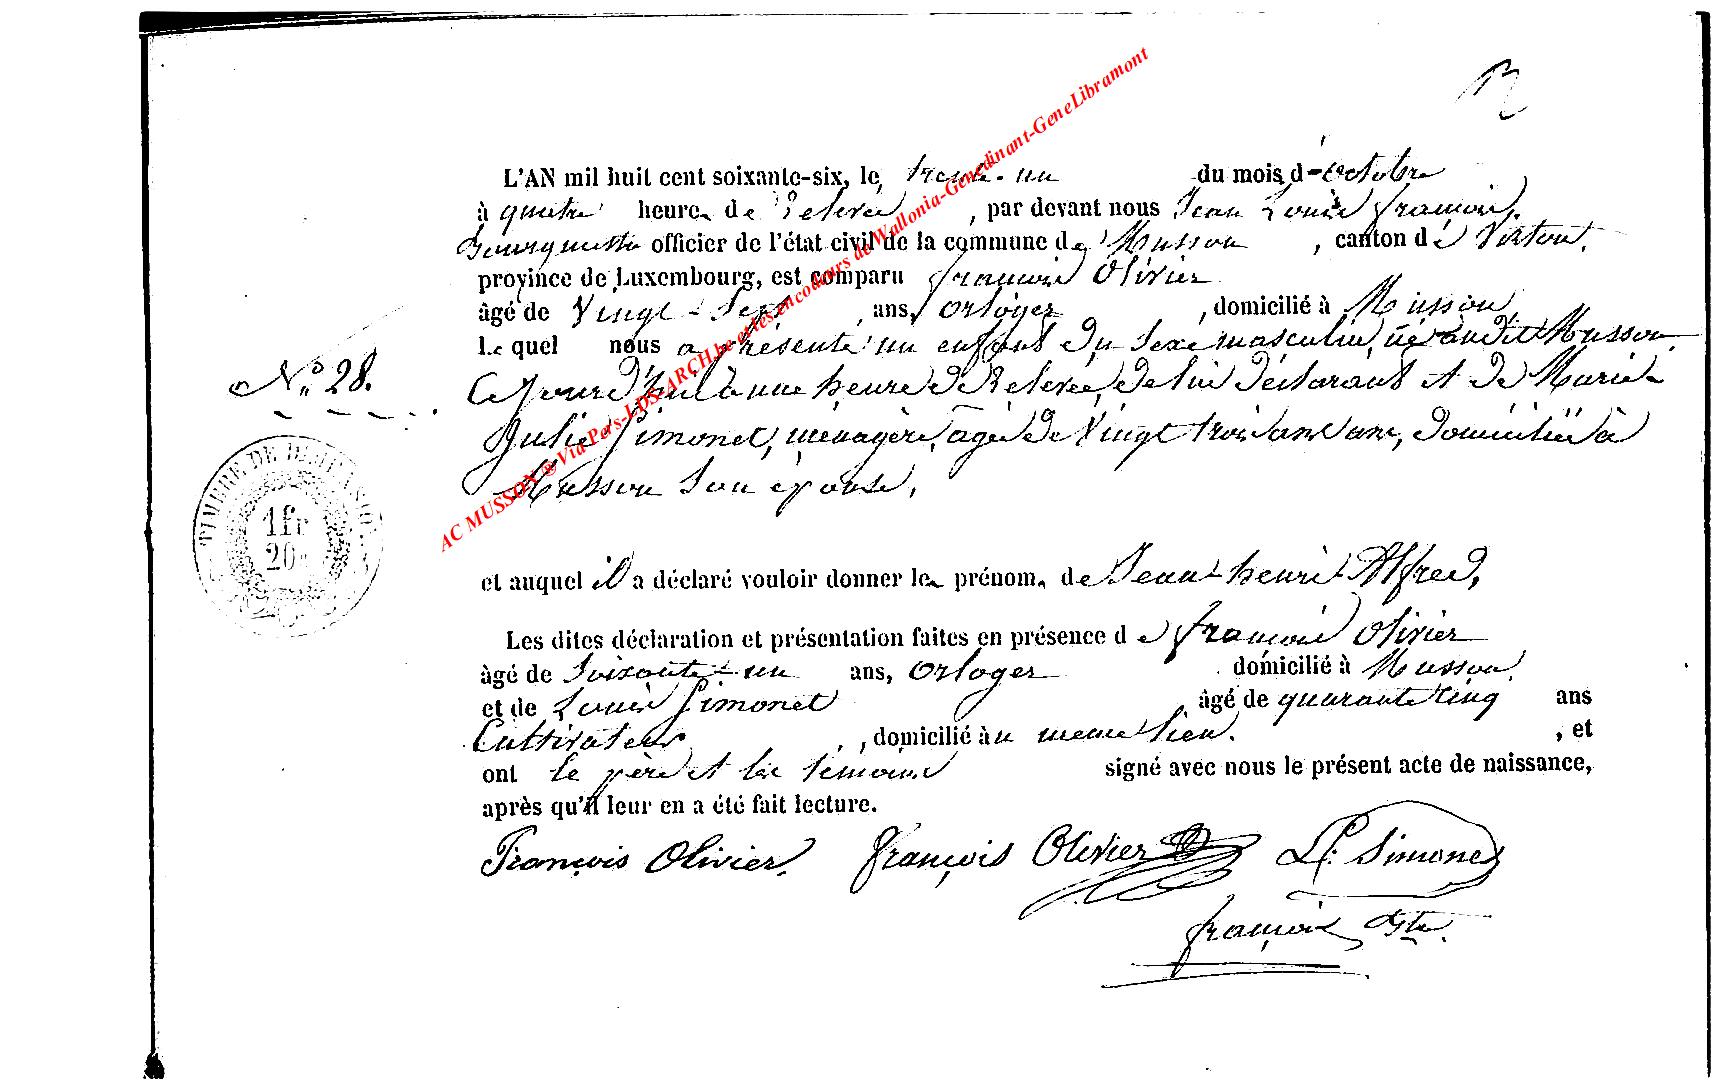 L'AN mil huit cent soixante-six, le trente-un du mois d'octobre
à quatre heures de relevée, par devant nous Jean Louis François
Bourguignon officier de l'état civil de la commune de Musson, canton de Virton.
province de Luxembourg, est comparu François Olivier
âgé de Vingt-Sept ans, orloger, domicilié à Musson,
Le quel nous a présenté un enfant du sexe masculin, né audit Musson
Ce jourd'hui à une heure de Relevée, de lui déclarant et de Marie-
Julie Simonet, ménagère, agée de Vingt trois ans, domiciliée à
Musson son épouse,
N° 28.
TIMBRE DE DIMENSION
1fr
20c
et auquel il a déclaré vouloir donner les prénoms de Jean-henri-Alfred,
Les dites déclaration et présentation faites en présence de françois Olivier
âgé de Soixante-un ans, orloger domicilié à Musson
et de Louis Simonet âgé de quarante cinq ans
Cultivateur, domicilié au même lieu, et
ont le père et les témoins signé avec nous le présent acte de naissance,
après qu'il leur en a été fait lecture.
François Olivier. françois Olivier L: Simonet
françois
AC MUSSON @ Via Pers-LDS-ARCH.be et les encodeurs de Wallonia-Genedinant-GeneLibramont